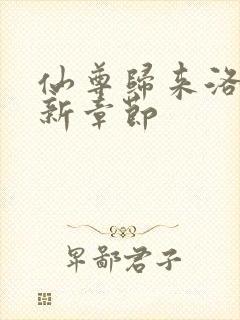 仙尊歸來洛
新章節
卑鄙君子